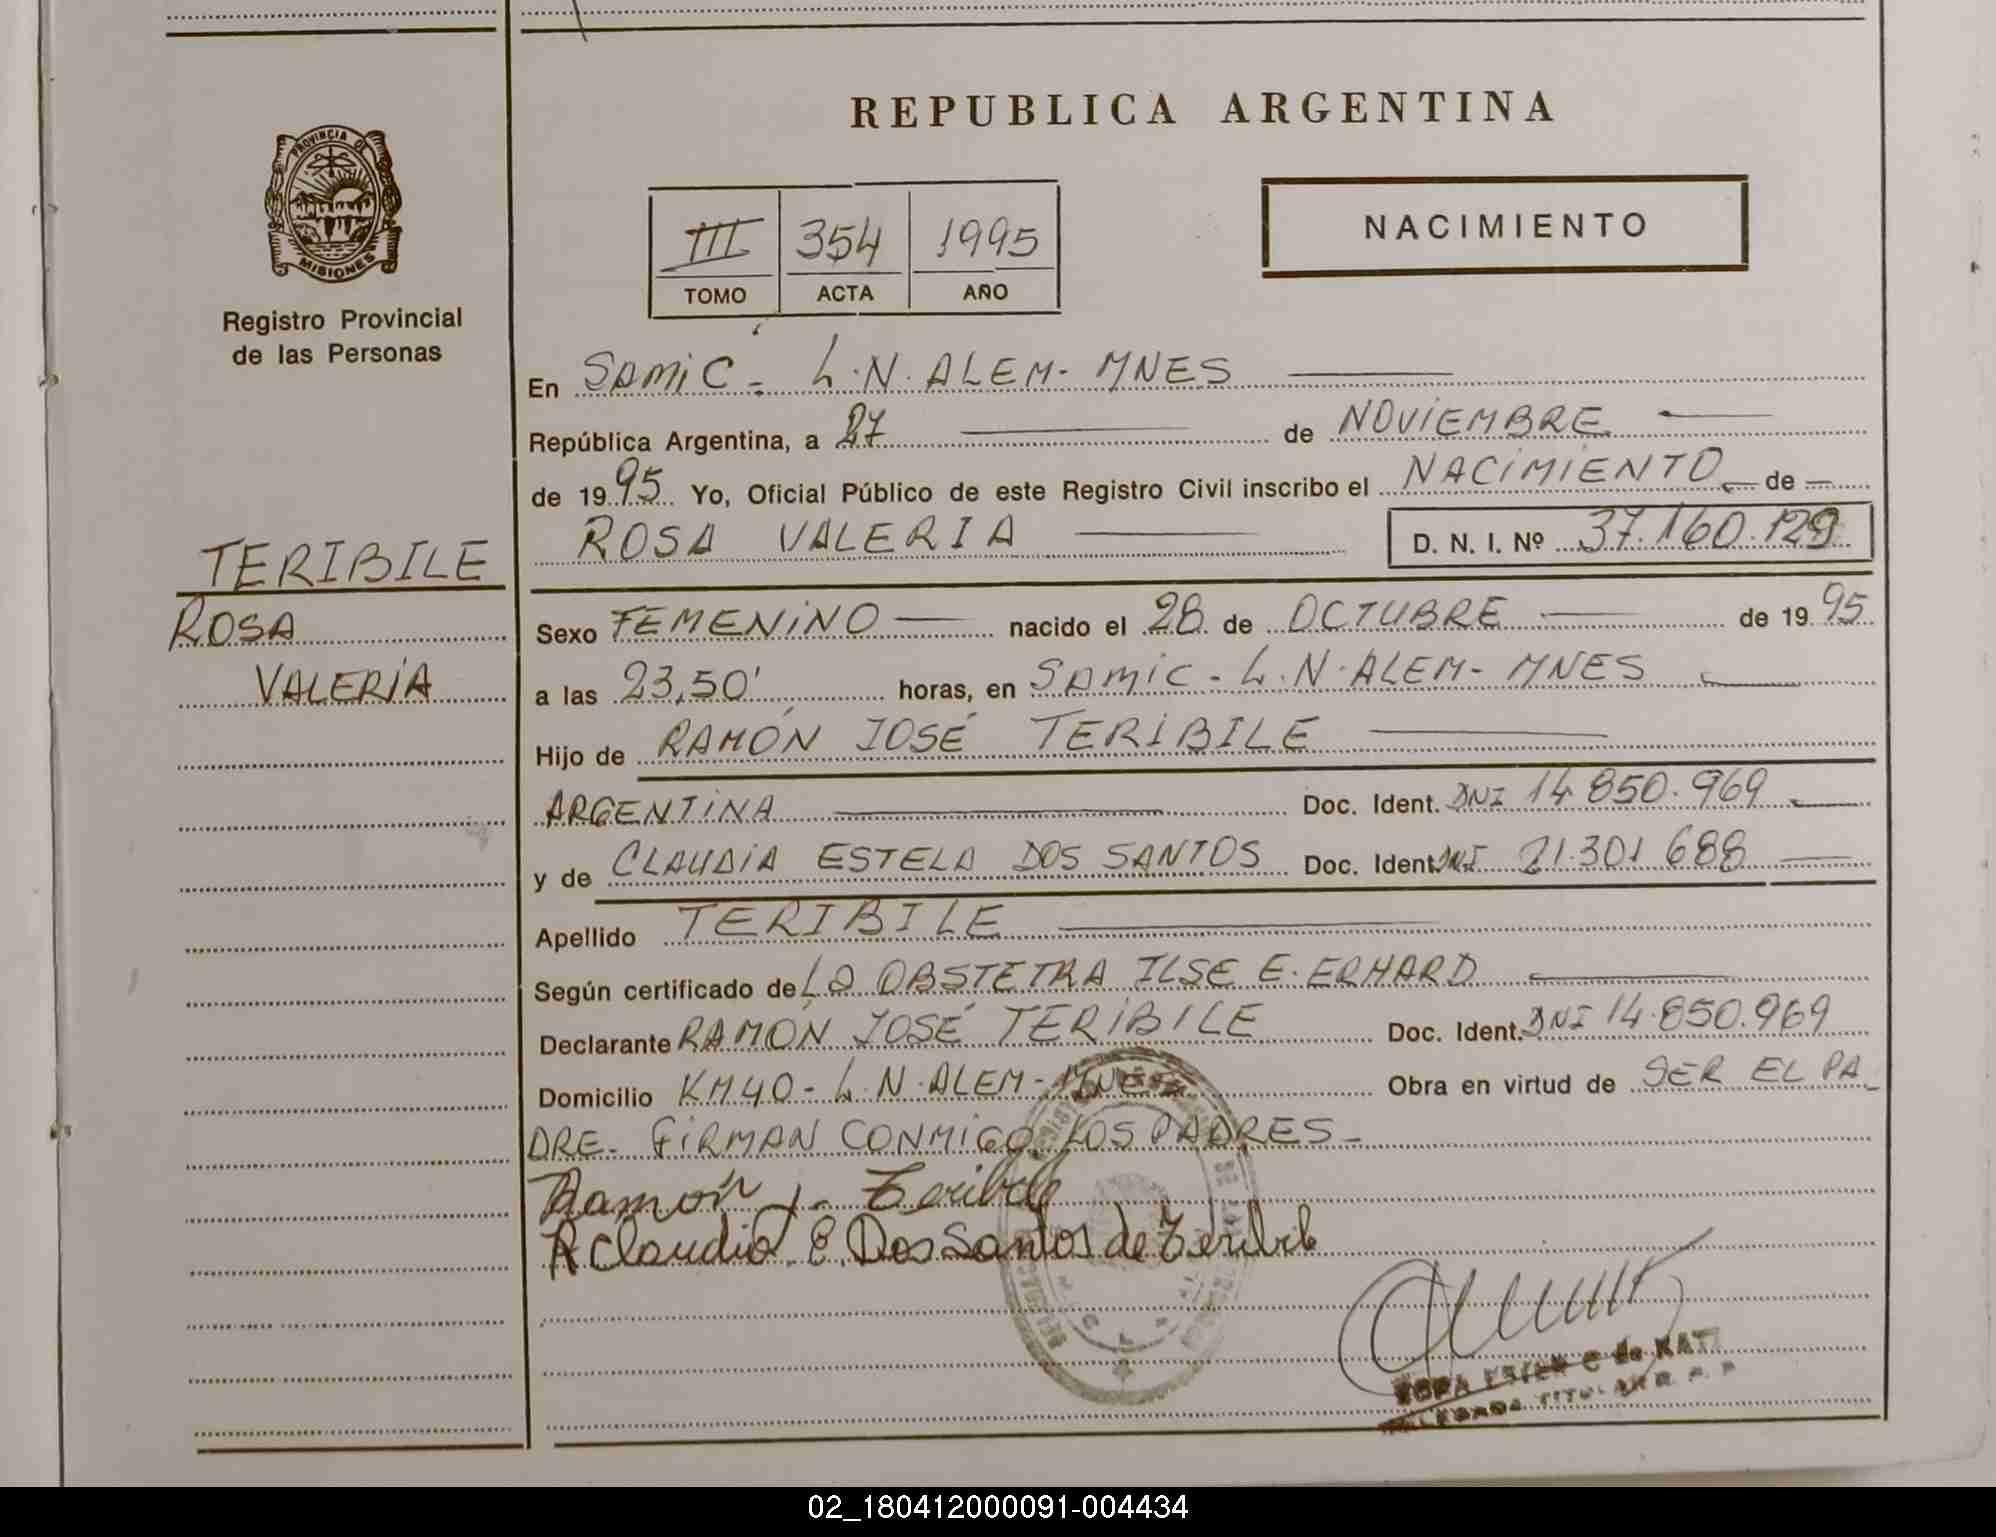 REPUBLICA ARGENTINA
PROVINCIA DE
MISIONES
Registro Provincial
de las Personas
III 354 1995
TOMO ACTA AÑO
NACIMIENTO
En SAMIC - L.N. ALEM - MNES
República Argentina, a 27 de NOVIEMBRE
de 1995 Yo, Oficial Público de este Registro Civil inscribo el NACIMIENTO de
ROSA VALERIA D. N. I. Nº 37.160.129
TERIBILE
ROSA
VALERIA
Sexo FEMENINO nacido el 28 de OCTUBRE de 1995
a las 23,50' horas, en SAMIC - L.N. ALEM - MNES
Hijo de RAMÓN JOSÉ TERIBILE
ARGENTINA Doc. Ident. DNI 14.850.969
y de CLAUDIA ESTELA DOS SANTOS Doc. Ident. DNI 21.301.688
Apellido TERIBILE
Según certificado de LA OBSTETRA ILSE E. ERHARD
Declarante RAMÓN JOSÉ TERIBILE Doc. Ident. DNI 14.850.969
Domicilio KM 40 - L.N. ALEM - MNES Obra en virtud de SER EL PA_
DRE - FIRMAN CONMIGO LOS PADRES -
Ramón J. Teribile
Claudia E. Dos Santos de Teribile
TITULAR R. P. P.
02_180412000091-004434